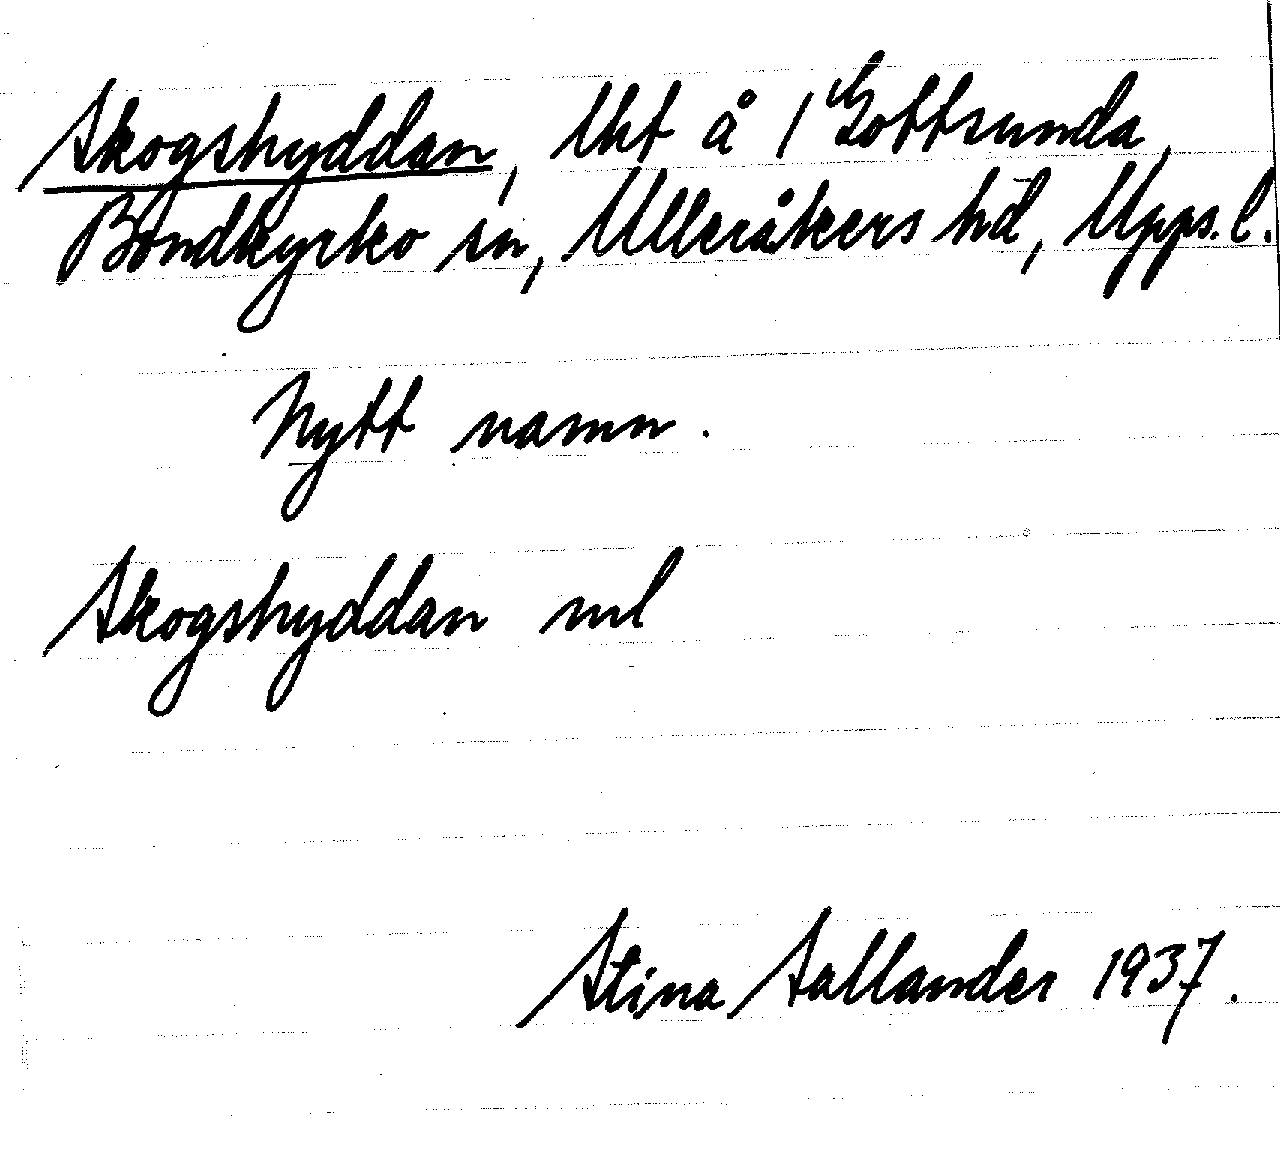 Skogshyddan, lht å 1 Gottsunda,
Bondkyrko sn, Ulleråkers hd, Upps. l.
Nytt namn.
Skogshyddan ml
Stina Sallander 1937.